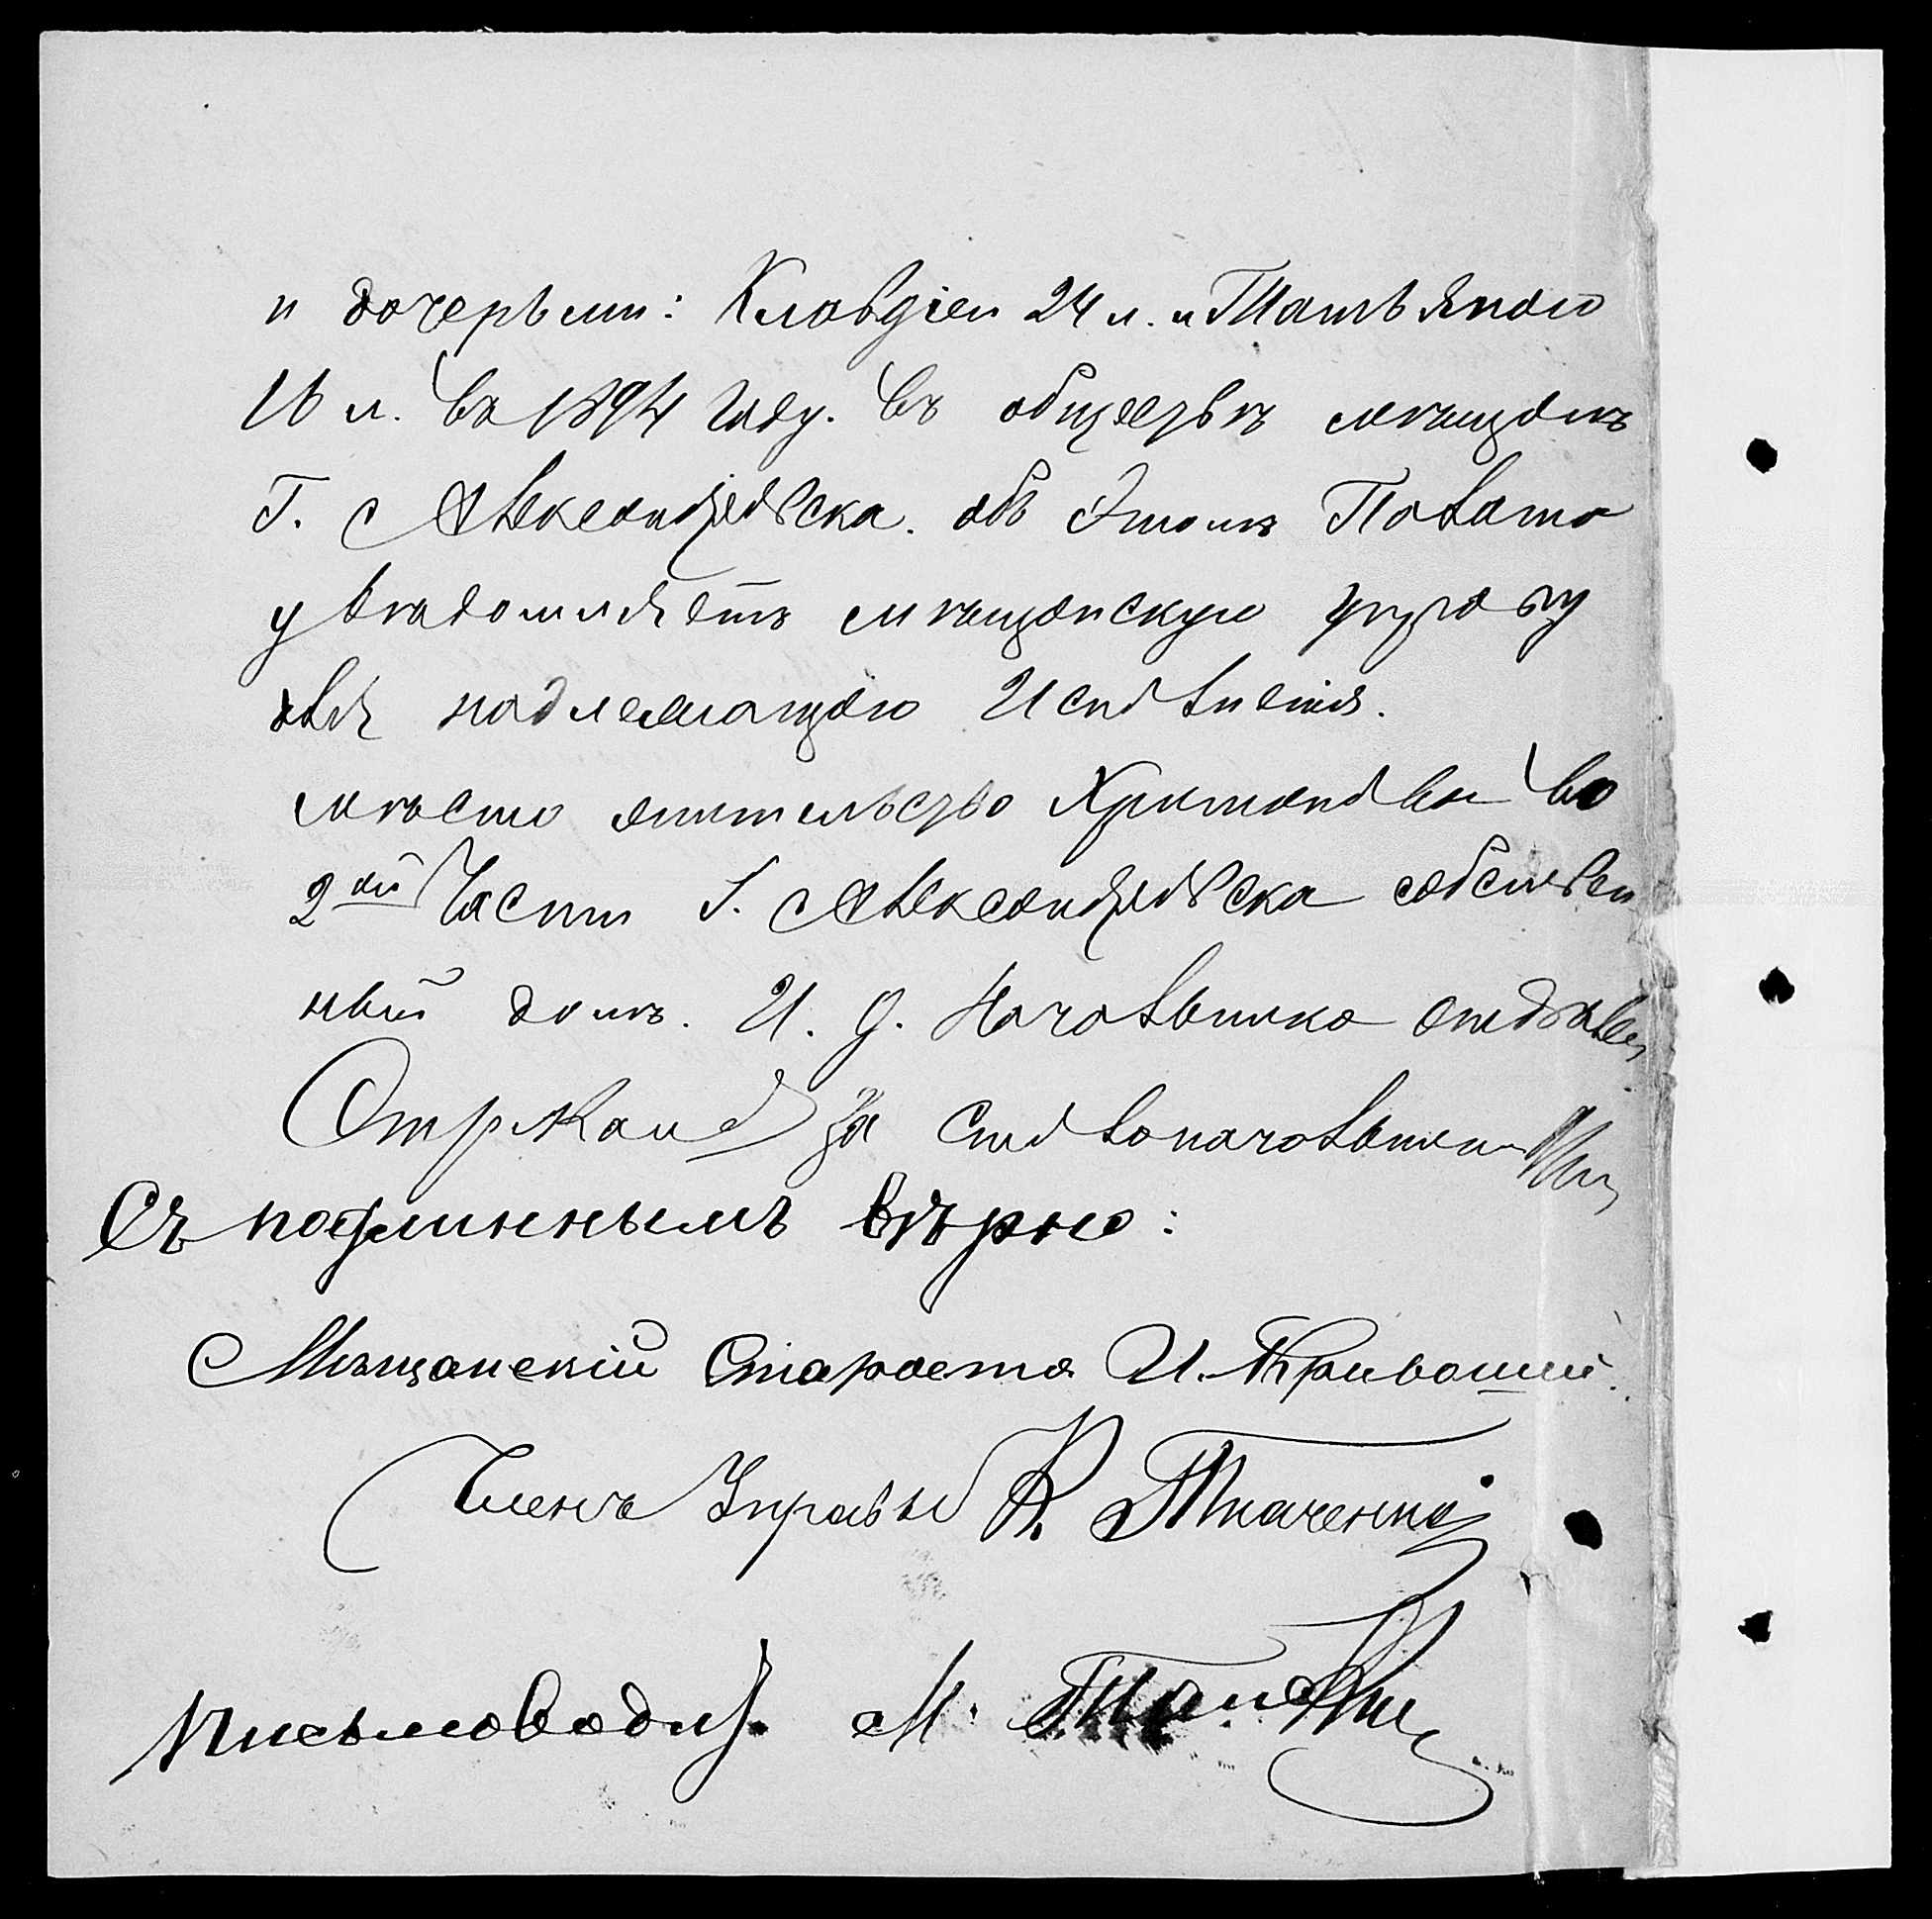 и дочерьми: Клавдіею 24 л. и Татьяною
16 л. въ 1894 году. въ обществѣ мѣщанъ
Г. Александровска. объ этомъ Палата
увѣдомляетъ мѣщанскую управу
для надлежащаго Исполненія.
мѣсто жительство во
2ой Части Г. Александровска собствен
ный домъ. И. д. Начальника отдѣлен
за Столоначальника
Съ подлиннымъ вѣрно:
Мѣщанскій Староста И.
Членъ Управы К. Ткаченко
Письмоводит. М.